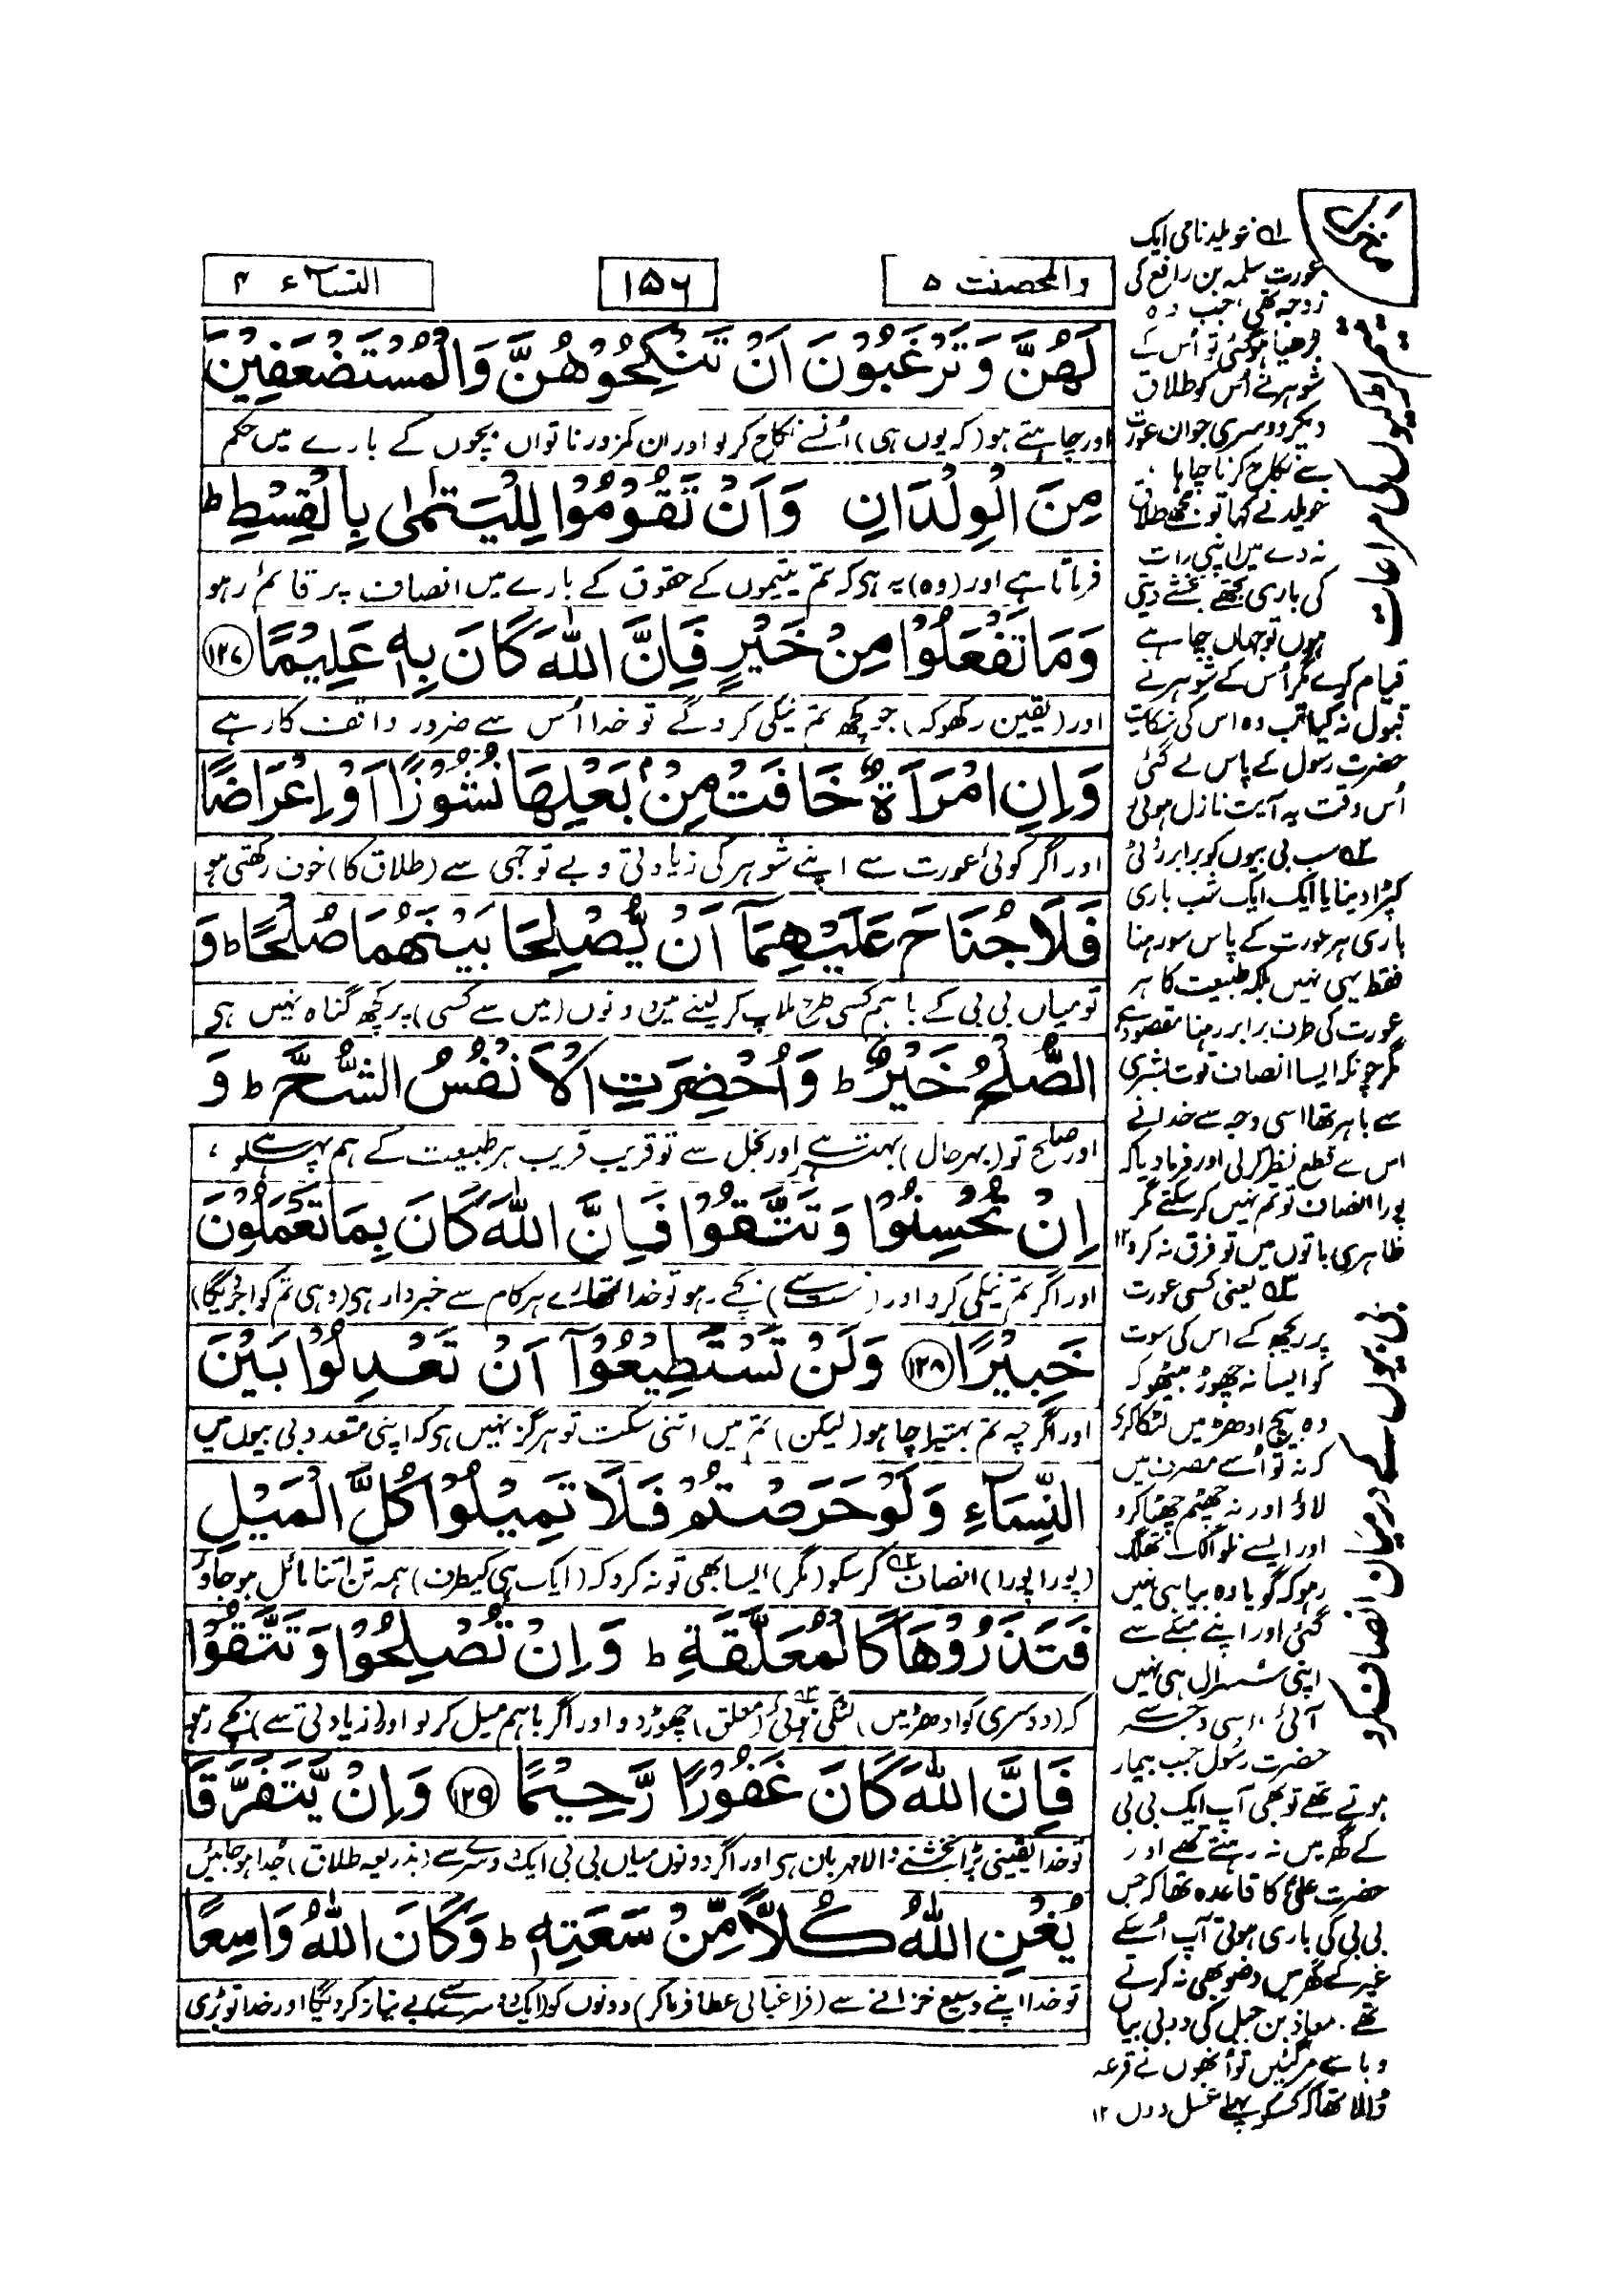 والمحصنت ۵
۱۵۶
النساء ۴
لَهُنَّ وَتَرْغَبُوْنَ اَنْ تَنْكِحُوْهُنَّ وَالْمُسْتَضْعَفِيْنَ
اور چاہتے ہو (کہ یوں ہی) اُنسے نکاح کرلو اور ان کمزور ناتواں بچوں کے بارے میں حکم
مِنَ الْوِلْدَانِ وَاَنْ تَقُوْمُوْا لِلْيَتٰمٰى بِالْقِسْطِ ط
فرماتا ہے اور (وہ) یہ ہی کہ تم یتیموں کے حقوق کے بارے میں انصاف پر قائم رہو
وَمَا تَفْعَلُوْا مِنْ خَيْرٍ فَاِنَّ اللّٰهَ كَانَ بِهٖ عَلِيْمًا ۱۲۷
اور (یقین رکھو کہ) جو کچھ تم نیکی کروگے تو خدا اُس سے ضرور واقف کار ہے
وَاِنِ امْرَاَةٌ خَافَتْ مِنْۢ بَعْلِهَا نُشُوْزًا اَوْ اِعْرَاضًا
اور اگر کوئی عورت سے اپنے شوہر کی زیادتی و بے توجہی سے (طلاق کا) خوف رکھتی ہو
فَلَا جُنَاحَ عَلَيْهِمَآ اَنْ يُّصْلِحَا بَيْنَهُمَا صُلْحًا ط وَ
تو میاں بی بی کے باہم کسی طرح ملاپ کر لینے میں دونوں (میں سے کسی) پر کچھ گناہ نہیں ہی
الصُّلْحُ خَيْرٌ ط وَاُحْضِرَتِ الْاَنْفُسُ الشُّحَّ ط وَ
اور صلح تو (بہرحال) بہتر ہے اور بخل سے تو قریب قریب ہر طبیعت کے ہم پہلو ہے،
اِنْ تُحْسِنُوْا وَتَتَّقُوْا فَاِنَّ اللّٰهَ كَانَ بِمَا تَعْمَلُوْنَ
اور اگر تم نیکی کرو اور بچے رہو تو خدا تمھارے ہر کام سے خبردار ہی (وہی تم کو اجر دیگا)
خَبِيْرًا ۱۲۸ وَلَنْ تَسْتَطِيْعُوْٓا اَنْ تَعْدِلُوْا بَيْنَ
اور اگرچہ تم بہتیرا چاہو (لیکن) تم میں اتنی سکت تو ہرگز نہیں ہی کہ اپنی متعدد بی بیوں میں
النِّسَآءِ وَلَوْ حَرَصْتُمْ فَلَا تَمِيْلُوْا كُلَّ الْمَيْلِ
(پورا پورا) انصاف کرسکو (مگر) ایسا بھی تو نہ کرو کہ (ایک ہی کیطرف) ہمہ تن اتنا مائل ہو جاؤ
فَتَذَرُوْهَا كَالْمُعَلَّقَةِ ط وَاِنْ تُصْلِحُوْا وَتَتَّقُوْا
کہ (دوسری کو ادھر میں) لٹکی ہوئی (معلق) چھوڑ دو اور اگر باہم میل کرلو اور (زیادتی سے) بچے رہو
فَاِنَّ اللّٰهَ كَانَ غَفُوْرًا رَّحِيْمًا ۱۲۹ وَاِنْ يَّتَفَرَّقَا
تو خدا یقینی بڑا بخشنے والا مہربان ہی اور اگر دونوں میاں بی بی ایک دوسرے سے (بذریعہ طلاق) جدا ہو جائیں
يُغْنِ اللّٰهُ كُلًّا مِّنْ سَعَتِهٖ ط وَكَانَ اللّٰهُ وَاسِعًا
تو خدا اپنے وسیع خزانے سے (فراغبالی عطا فرماکر) دونوں کو (ایک دوسرے سے) بے نیاز کردیگا اور خدا تو بڑی
منزل
۱؎ خویلد نامی ایک
عورت سلمہ بن رافع کی
زوجہ تھی، جب وہ
بڑھیا ہوگئی تو اُس کے
شوہر نے اُس کو طلاق
دیکر دوسری جوان عورت
سے نکاح کرنا چاہا،
خویلد نے کہا تو مجھے طلاق
نہ دے میں اپنی رات
کی باری تجھے بخشے دیتی
ہوں تو جہاں چاہے
قیام کرے مگر اُس کے شوہر نے
قبول نہ کیا تب وہ اس کی شکایت
حضرت رسول کے پاس لے گئی
اُس وقت یہ آیت نازل ہوئی
۲؎ سب بی بیوں کو برابر روٹی
کپڑا دینا یا ایک ایک شب باری
باری ہر عورت کے پاس سو رہنا
فقط یہی نہیں بلکہ طبیعت کا ہر
عورت کی طرف برابر رہنا مقصود ہے
مگر چونکہ ایسا انصاف قوت بشری
سے باہر تھا اسی وجہ سے خدا نے
اس سے قطع نظر کرلی اور فرما دیا کہ
پورا انصاف تو تم نہیں کرسکتے مگر
ظاہری باتوں میں تو فرق نہ کرو ۱۲
۳؎ یعنی کسی عورت
پر ریجھ کے اس کی سوت
کو ایسا نہ چھوڑ بیٹھو کہ
وہ بیچ ادھر میں لٹکا کرے
کہ نہ تو اُسے مصرف میں
لاؤ اور نہ چھٹم چھٹا کرو
اور ایسے الگ تھلگ
رہو کہ گویا وہ بیاہی نہیں
گئی اور اپنے میکے سے
اپنی سسرال ہی نہیں
آئی، اسی وجہ سے
حضرت رسول جب بیمار
ہوتے تھے تو بھی آپ ایک بی بی
کے گھر میں نہ رہتے تھے اور
حضرت علیؑ کا قاعدہ تھا کہ جس
بی بی کی باری ہوتی آپ اُسکے
غیر کے گھر میں وضو بھی نہ کرتے
تھے۔ معاذ بن جبل کی دو بی بیاں
وبا سے مرگئیں تو اُنھوں نے قرعہ
ڈالا تھا کہ کس کو پہلے غسل دوں ۱۲
یتیم لڑکیوں کی مراعات
بی بیوں کے درمیان انصاف کرو